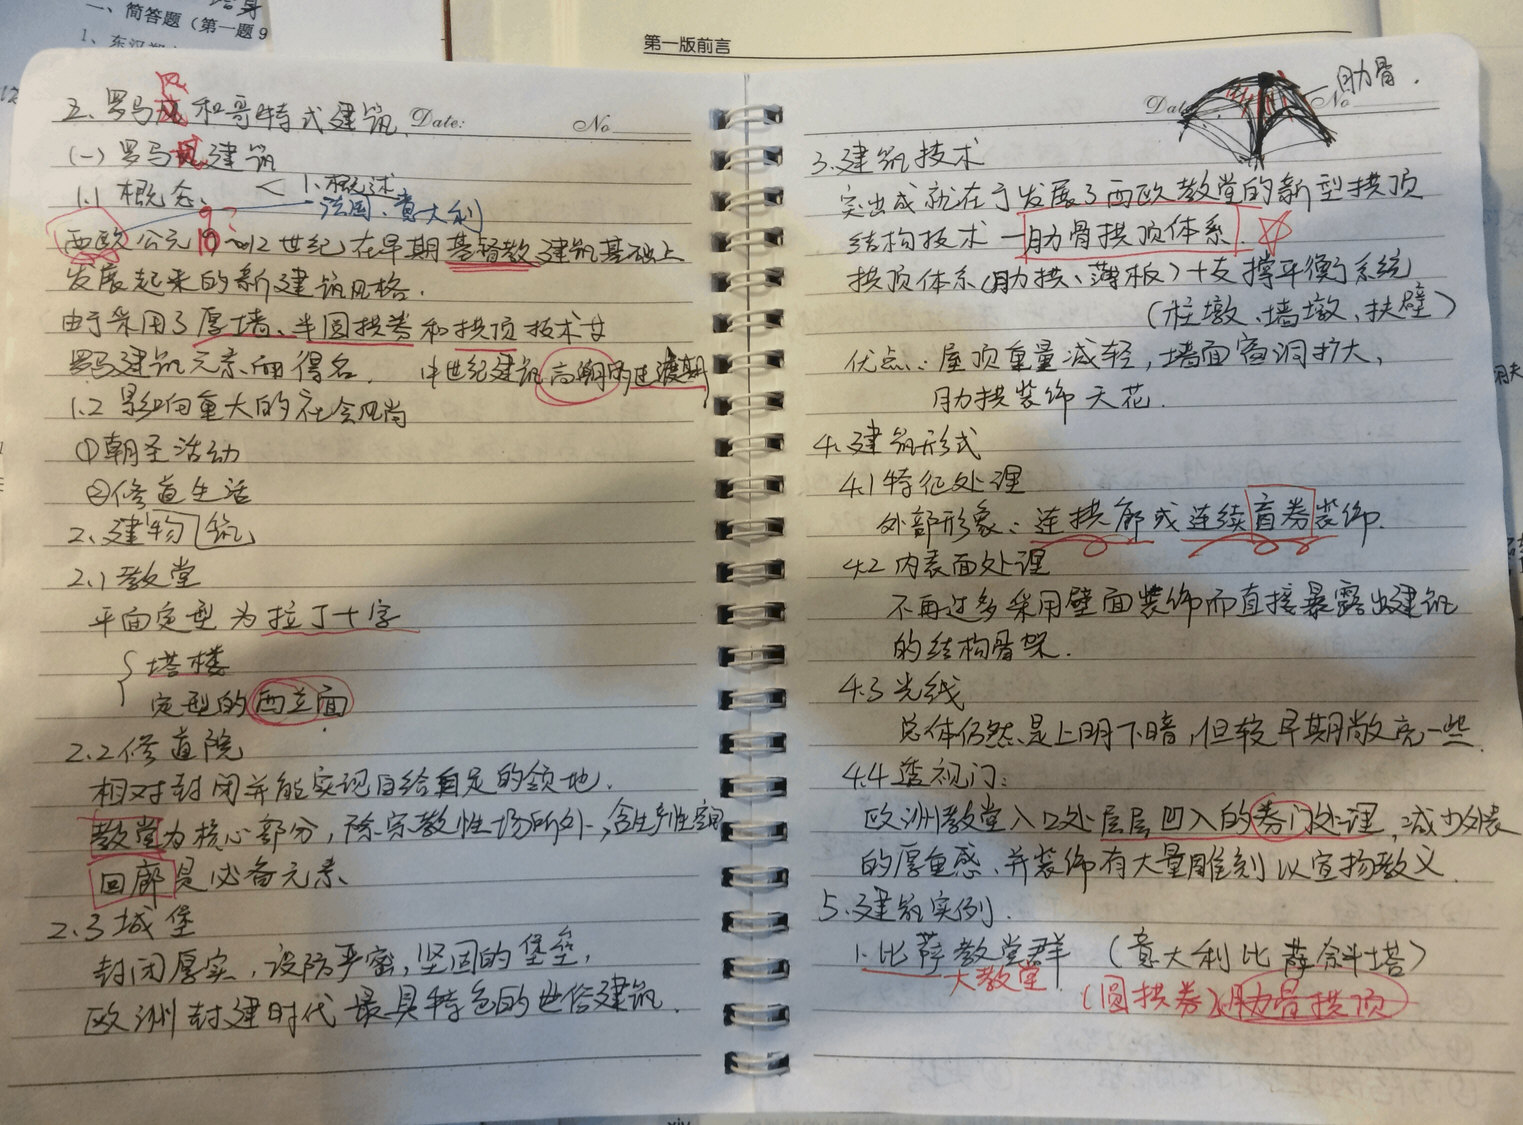 一、简答题（第一题9
1、东汉
第一版前言
三、罗马风和哥特式建筑
Date:
No
(一)罗马风建筑
1.1 概念、 < 1.概述
法国、意大利
西欧公元10~12世纪,在早期基督教建筑基础上
9?
发展起来的新建筑风格.
由于采用了厚墙、半圆拱券和拱顶技术等
罗马建筑元素而得名. 中世纪建筑高潮的过渡期
1.2 影响重大的社会风尚
①朝圣活动
②修道生活
2、建筑
2.1 教堂
平面定型为拉丁十字
{ 塔楼
定型的西立面
2.2 修道院
相对封闭并能实现自给自足的领地.
教堂为核心部分,除宗教性场所外,含生产性空间
回廊是必备元素、
2.3 城堡
封闭厚实,设防严密,坚固的堡垒,
欧洲封建时代最具特色的世俗建筑.
Dat
No
肋骨.
3.建筑技术
突出成就在于发展了西欧教堂的新型拱顶
结构技术—肋骨拱顶体系.
拱顶体系(肋拱、薄板)+支撑平衡系统
(柱墩、墙墩、扶壁)
优点:屋顶重量减轻,墙面窗洞扩大、
肋拱装饰天花.
4.建筑形式
4.1 特征处理
外部形象:连拱廊或连续盲券装饰.
4.2 内表面处理
不再过多采用壁面装饰而直接暴露出建筑
的结构骨架.
4.3 光线
总体仍然是上明下暗,但较早期敞亮一些.
4.4 透视门:
欧洲教堂入口处层层凹入的券门处理,减少外表
的厚重感、并装饰有大量雕刻以宣扬教义.
5.建筑实例.
1.比萨教堂群 (意大利比萨斜塔)
大教堂
(圆拱券)、肋骨拱顶